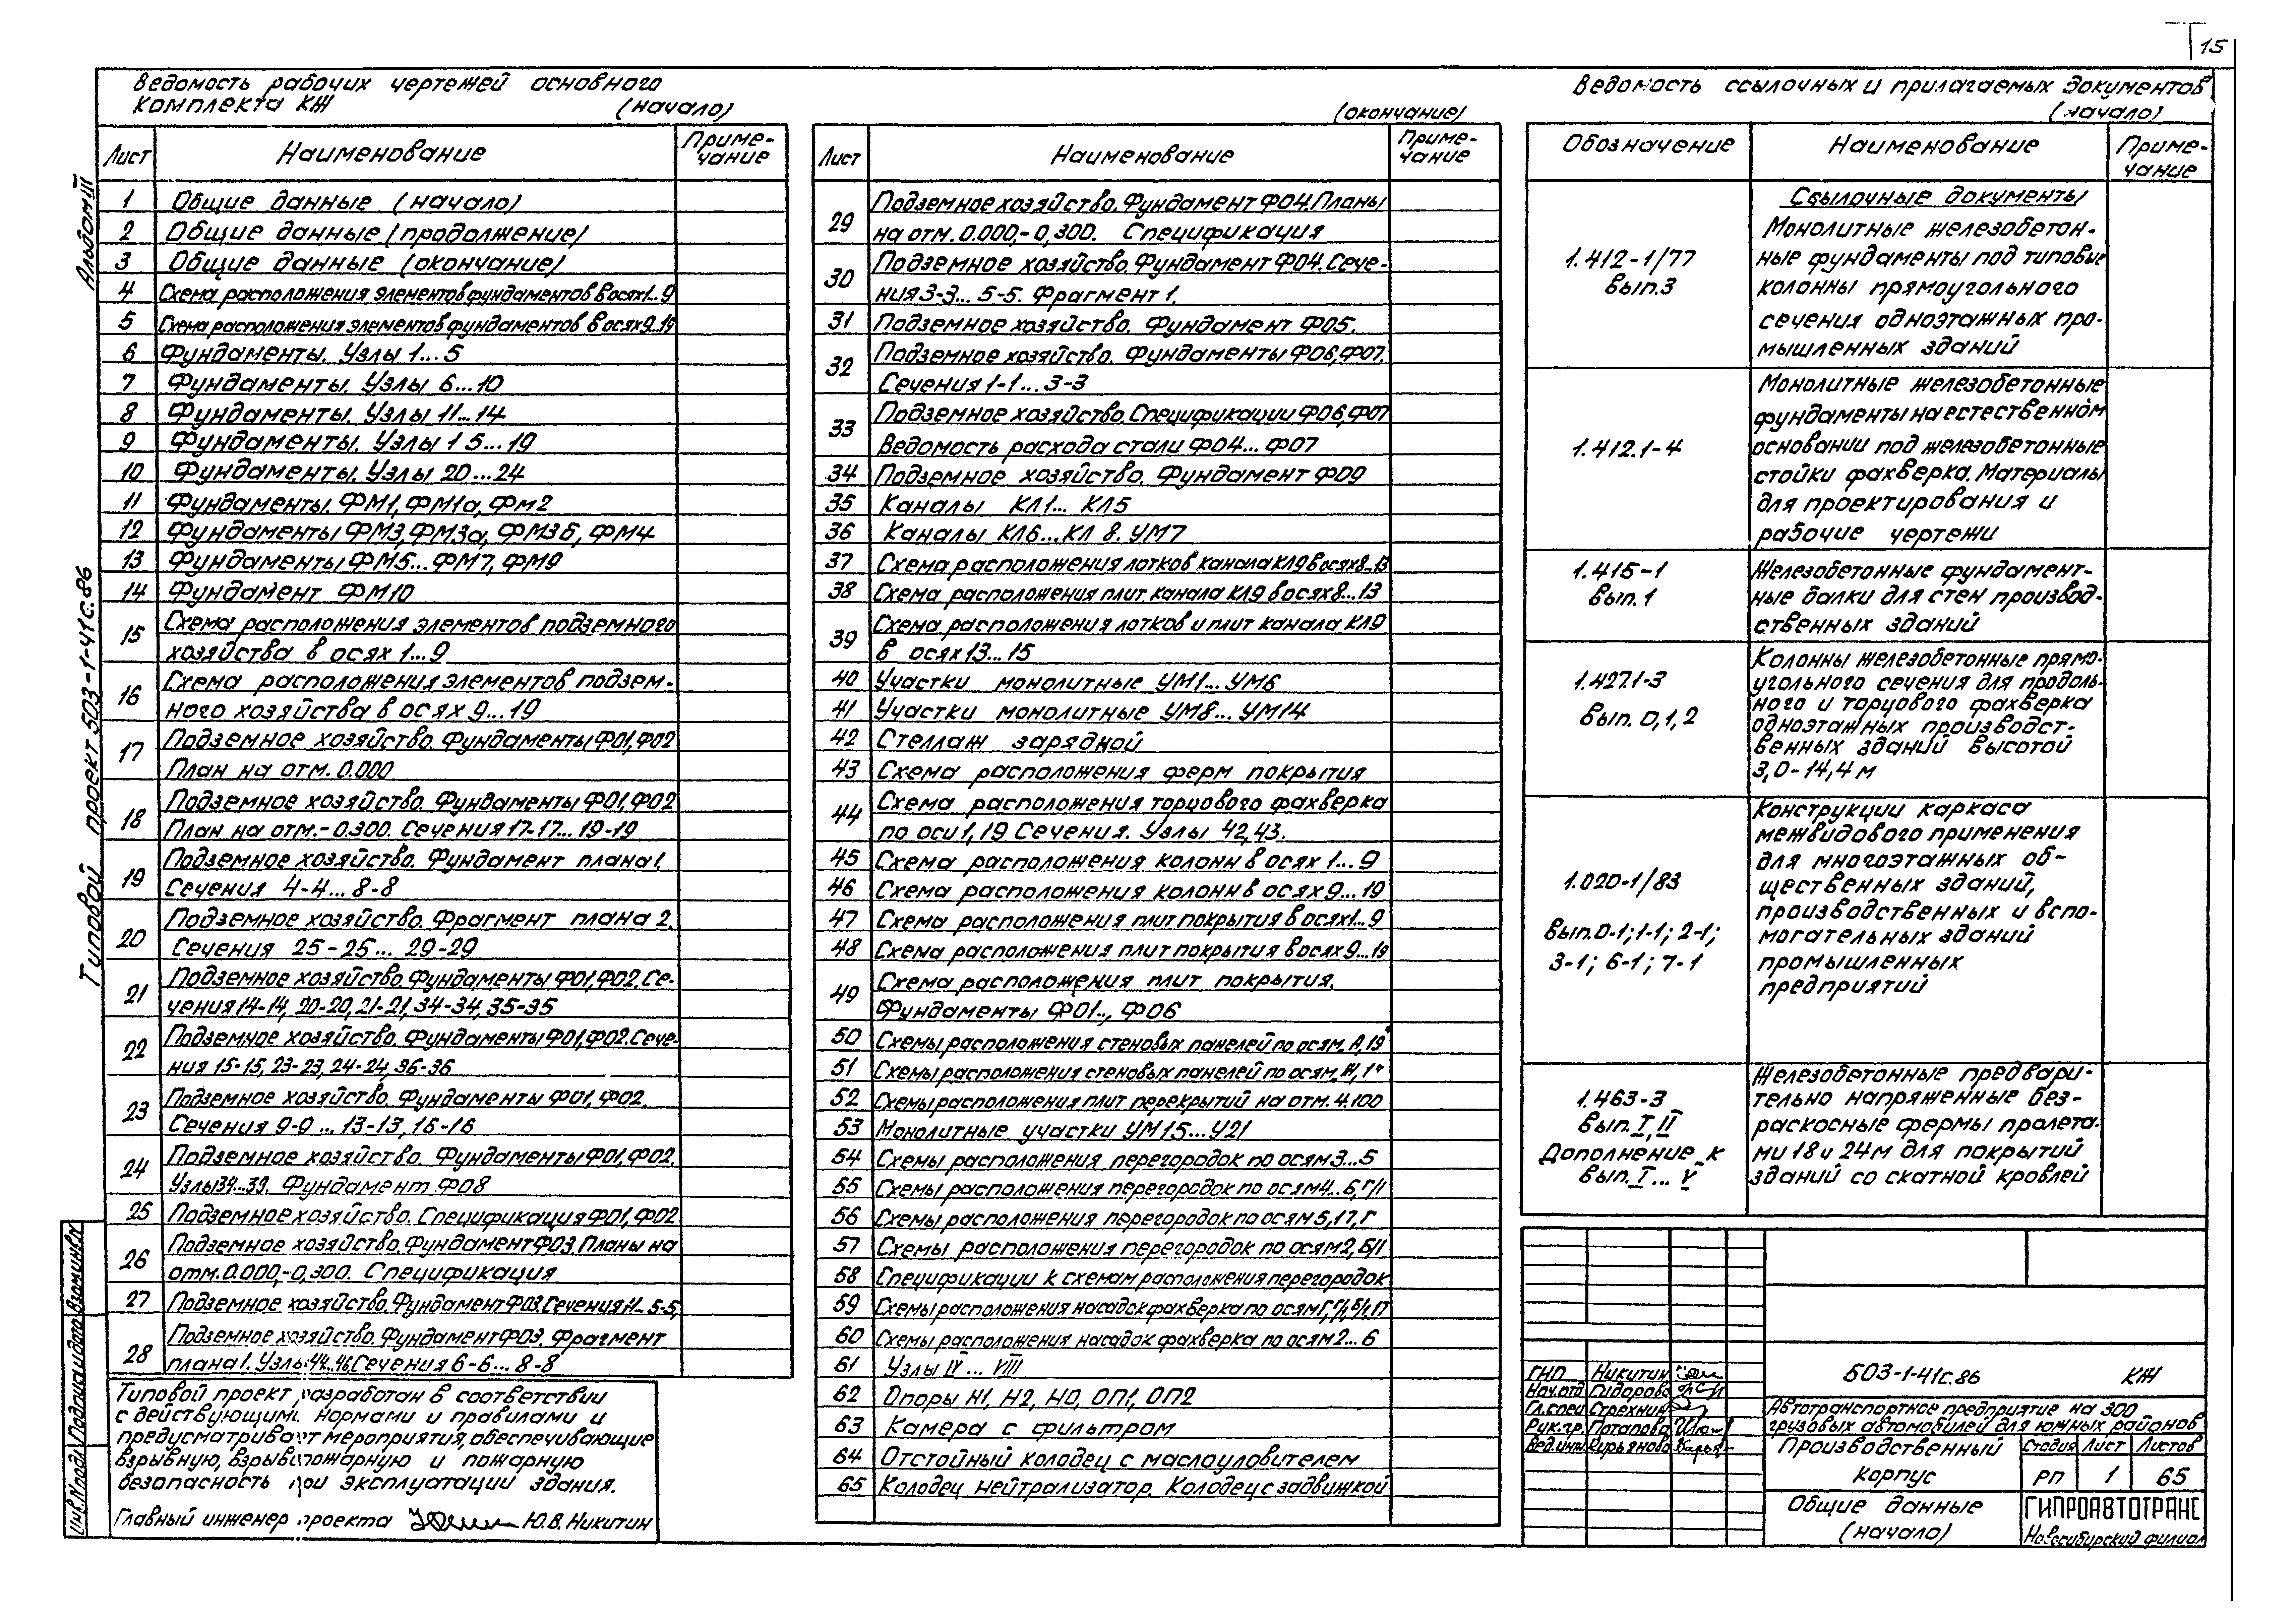 15
Ведомость рабочих чертежей основного
комплекта КЖ (начало)
Лист Наименование Приме-
чание
1 Общие данные (начало)
2 Общие данные (продолжение)
3 Общие данные (окончание)
4 Схема расположения элементов фундаментов в осях 1...9
5 Схема расположения элементов фундаментов в осях 9...19
6 Фундаменты. Узлы 1...5
7 Фундаменты. Узлы 6...10
8 Фундаменты. Узлы 11...14
9 Фундаменты. Узлы 15...19
10 Фундаменты. Узлы 20...24
11 Фундаменты. ФМ1, ФМ1а, Фм2
12 Фундаменты ФМ3, ФМ3а, ФМ3б, ФМ4
13 Фундаменты ФМ5...ФМ7, ФМ9
14 Фундамент ФМ10
15 Схема расположения элементов подземного
хозяйства в осях 1...9
16 Схема расположения элементов подзем-
ного хозяйства в осях 9...19
17 Подземное хозяйство. Фундаменты Ф01, Ф02
План на отм. 0.000
18 Подземное хозяйство. Фундаменты Ф01, Ф02
План на отм. - 0.300. Сечения 17-17... 19-19
19 Подземное хозяйство. Фундамент плана 1.
Сечения 4-4... 8-8
20 Подземное хозяйство. Фрагмент плана 2.
Сечения 25-25... 29-29
21 Подземное хозяйство. Фундаменты Ф01, Ф02. Се-
чения 14-14, 20-20, 21-21, 34-34, 35-35
22 Подземное хозяйство. Фундаменты Ф01, Ф02. Сече-
ния 15-15, 23-23, 24-24, 36-36
23 Подземное хозяйство. Фундаменты Ф01, Ф02.
Сечения 9-9 ... 13-13, 16-16
24 Подземное хозяйство. Фундаменты Ф01, Ф02.
Узлы 34...39. Фундамент Ф08
25 Подземное хозяйство. Спецификация Ф01, Ф02
26 Подземное хозяйство. Фундамент Ф03. Планы на
отм. 0.000, -0,300. Спецификация
27 Подземное хозяйство. Фундамент Ф03. Сечения 1-1... 5-5,
28 Подземное хозяйство. Фундамент Ф03. Фрагмент
плана 1. Узлы 44...46. Сечения 6-6... 8-8
Типовой проект разработан в соответствии
с действующими нормами и правилами и
предусматривает мероприятия, обеспечивающие
взрывную, взрывопожарную и пожарную
безопасность при эксплуатации здания.
Главный инженер проекта Ю.В. Никитин
(окончание)
Лист Наименование Приме-
чание
29 Подземное хозяйство. Фундамент Ф04. Планы
на отм. 0.000, - 0,300. Спецификация
30 Подземное хозяйство. Фундамент Ф04. Сече-
ния 3-3... 5-5. Фрагмент 1.
31 Подземное хозяйство. Фундамент Ф05.
32 Подземное хозяйство. Фундаменты Ф06, Ф07.
Сечения 1-1... 3-3
33 Подземное хозяйство. Спецификации Ф06, Ф07
Ведомость расхода стали Ф04... Ф07
34 Подземное хозяйство. Фундамент Ф09
35 Каналы КЛ1... КЛ5
36 Каналы КЛ6... КЛ 8. УМ7
37 Схема расположения лотков канала КЛ9 в осях 8...13
38 Схема расположения плит канала КЛ9 в осях 8...13
39 Схема расположения лотков и плит канала КЛ9
в осях 13... 15
40 Участки монолитные УМ1... УМ6
41 Участки монолитные УМ8... УМ14
42 Стеллаж зарядной
43 Схема расположения ферм покрытия
44 Схема расположения торцового фахверка
по оси 1, 19 Сечения. Узлы 42, 43.
45 Схема расположения колонн в осях 1... 9
46 Схема расположения колонн в осях 9... 19
47 Схема расположения плит покрытия в осях 1... 9
48 Схема расположения плит покрытия в осях 9... 19
49 Схема расположения плит покрытия.
Фундаменты Ф01.., Ф06
50 Схемы расположения стеновых панелей по осям „А, 19"
51 Схемы расположения стеновых панелей по осям „Н, 1"
52 Схемы расположения плит перекрытий на отм. 4.100
53 Монолитные участки УМ15... У21
54 Схемы расположения перегородок по осям 3...5
55 Схемы расположения перегородок по осям 4...6, Г/1
56 Схемы расположения перегородок по осям 5, 17, Г
57 Схемы расположения перегородок по осям 2, Б/1
58 Спецификации к схемам расположения перегородок
59 Схемы расположения насадок фахверка по осям Г, Г/1, Б/1, П
60 Схемы расположения насадок фахверка по осям 2... 6
61 Узлы IV ... VIII
62 Опоры Н1, Н2, НО, ОП1, ОП2
63 Камера с фильтром
64 Отстойный колодец с маслоуловителем
65 Колодец нейтрализатор. Колодец с задвижкой
Ведомость ссылочных и прилагаемых документов
(начало)
Обозначение Наименование Приме-
чание
Ссылочные документы
1.412-1/77
вып.3
Монолитные железобетон-
ные фундаменты под типовые
колонны прямоугольного
сечения одноэтажных про-
мышленных зданий
1.412.1-4
Монолитные железобетонные
фундаменты на естественном
основании под железобетонные
стойки фахверка. Материалы
для проектирования и
рабочие чертежи
1.415-1
вып.1
Железобетонные фундамент-
ные балки для стен производ-
ственных зданий
1.427.1-3
вып. 0, 1, 2
Колонны железобетонные прямо-
угольного сечения для продоль-
ного и торцового фахверка
одноэтажных производст-
венных зданий высотой
3,0-14,4 м
1.020-1/83
вып.0-1; 1-1; 2-1;
3-1; 6-1; 7-1
Конструкции каркаса
межвидового применения
для многоэтажных об-
щественных зданий,
производственных и вспо-
могательных зданий
промышленных
предприятий
1.463-3
вып. I, II
Дополнение к
вып. I... V
Железобетонные предвари-
тельно напряженные без-
раскосные фермы пролета-
ми 18 и 24м для покрытий
зданий со скатной кровлей
ГНП Никитин
Нач.отд Сидорова
Гл.спец Стрехнин
Рук.гр. Потапова
Вед.инж. Кирьянова
503-1-41с.86 КЖ
Автотранспортное предприятие на 300
грузовых автомобилей для южных районов
Производственный
корпус
Стадия Лист Листов
РП 1 65
Общие данные
(начало)
ГИПРОАВТОТРАНС
Новосибирский филиал
Альбом III
Типовой проект 503-1-41с.86
Инв.№подл. Подпись и дата Взам.инв.№